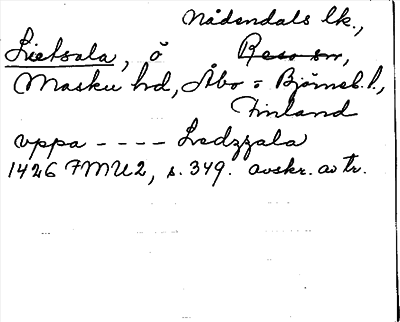 Nådendals lk.,
Lietsala, ö Reso sn,
Masku hd, Åbo = Björneb. l.,
Finland
uppa - - - - Ledzzala
1426 FMU2, s. 349. avskr. av tr.